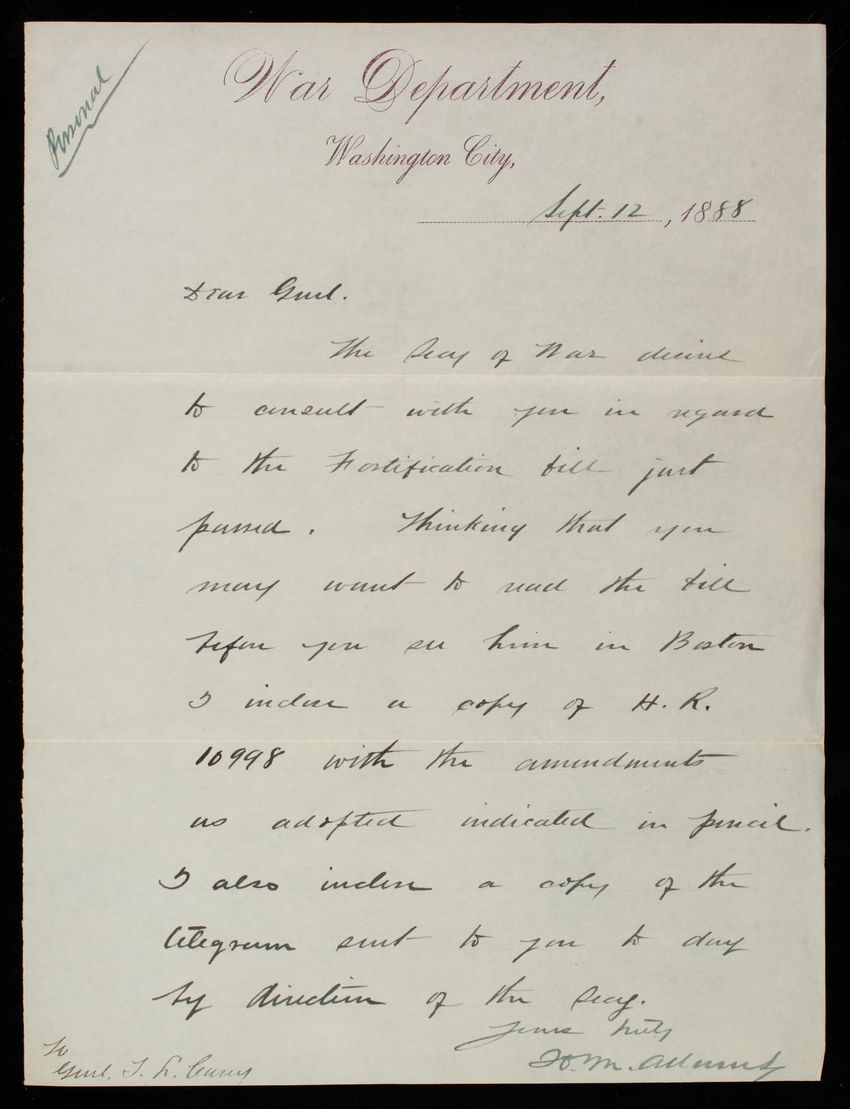 Personal
War Department,
Washington City,
Sept. 12, 1888
Dear Genl.
The Secy of War desires
to consult with you in regard
to the Fortification bill just
passed. Thinking that you
may want to read the bill
before you see him in Boston
I inclose a copy of H. R.
10998 with the amendments
as adopted indicated in pencil.
I also inclose a copy of the
telegram sent to you to day
by direction of the Secy.
Yours truly
M. Adams
To
Genl. T. L. Casey